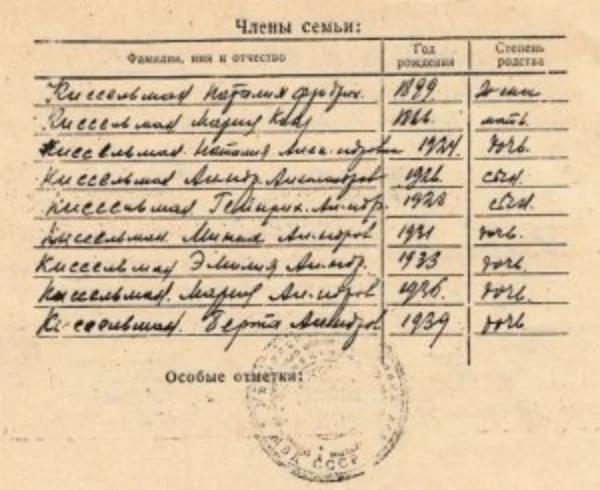 Члены семьи:
Фамилия, имя и отчество Год рождения Степень родства
Киссельман Наталия Фридрих. 1899 жена
Киссельман Мария 1866 мать
Киссельман Наталия Алек-ндровн 1924 дочь.
Киссельман Ал-ндр. Александров 1926 сын.
Киссельман Гейнрих. Ал-ндр. 1928 сын.
Киссельман. Минна Ал-ндров 1931 дочь.
Киссельман Эмилия Ал-ндр. 1933 дочь.
Киссельман. Мария Ал-ндров 1936 дочь.
Киссельман. Берта Ал-ндров 1939 дочь
Особые отметки:
СССР